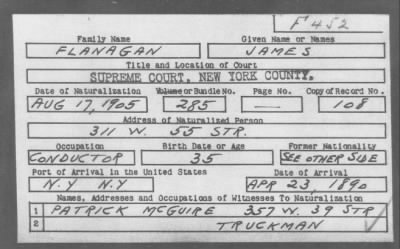 F 452
Family Name Given Name or Names
FLANAGAN JAMES
Title and Location of Court
SUPREME COURT, NEW YORK COUNTY.
Date of Naturalization Volume or Bundle No. Page No. Copy of Record No.
AUG 17, 1905 285 — 108
Address of Naturalized Person
311 W. 55 STR.
Occupation Birth Date or Age Former Nationality
CONDUCTOR 35 SEE OTHER SIDE
Port of Arrival in the United States Date of Arrival
N.Y N.Y APR 23, 1890
Names, Addresses and Occupations of Witnesses To Naturalization
1 PATRICK MCGUIRE 357 W. 39 STR
2 TRUCKMAN